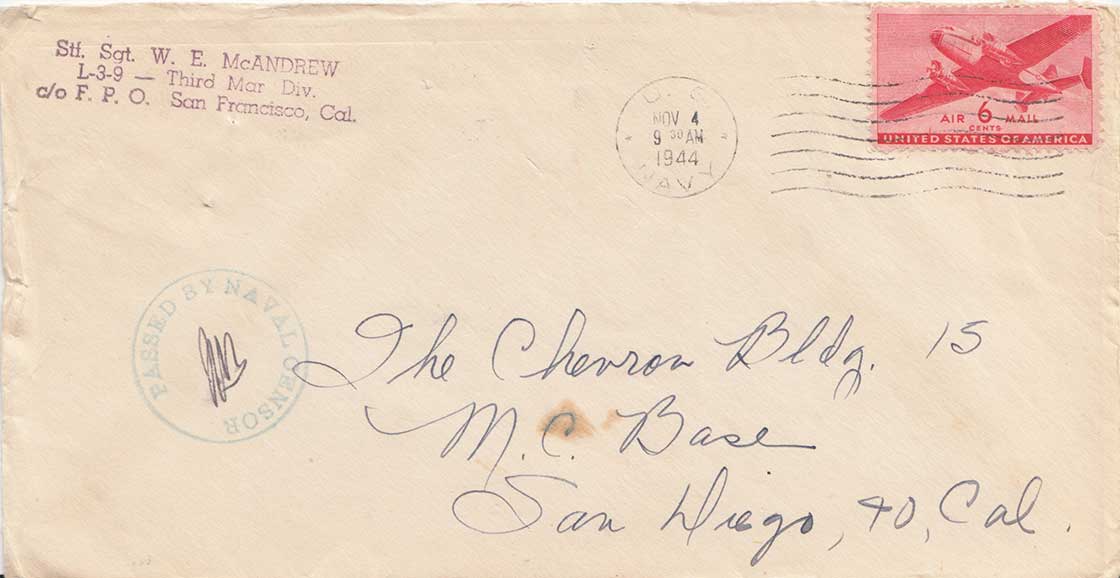 Stf. Sgt. W. E. McANDREW
L-3-9 — Third Mar Div.
c/o F. P. O. San Francisco, Cal.
U. S.
NOV 4
9 30 AM
1944
NAVY
AIR 6 MAIL
CENTS
UNITED STATES OF AMERICA
PASSED BY NAVAL CENSOR
The Chevron Bldg. 15
M. C. Base
San Diego, 40, Cal.